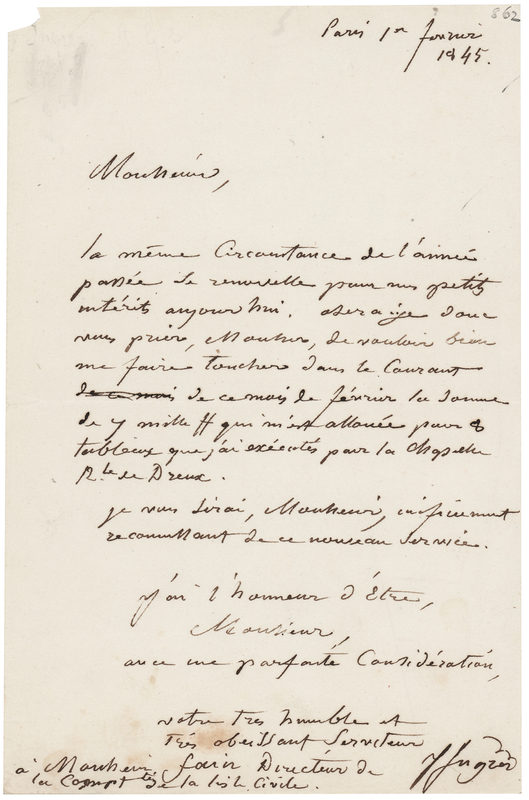 862
Paris 1er février
1845.
Monsieur,
la même Circonstance de l'année
passée se renouvelle pour mes petits
intérêts aujourd'hui. oserai-je donc
vous prier, Monsieur, de vouloir bien
me faire toucher dans le Courant
de ce mois de ce mois de février la somme
de 7 mille ff qui m'est allouée pour 8
tableaux que j'ai exécutés pour la chapelle
Rle de Dreux.
je vous serai, Monsieur, infiniment
reconnaissant de ce nouveau service.
j'ai l'honneur d'Être,
Monsieur,
avec une parfaite Considération,
votre très humble et
très obéissant Serviteur
J Ingres
à Monsieur Directeur de
la Comptté de la liste Civile.